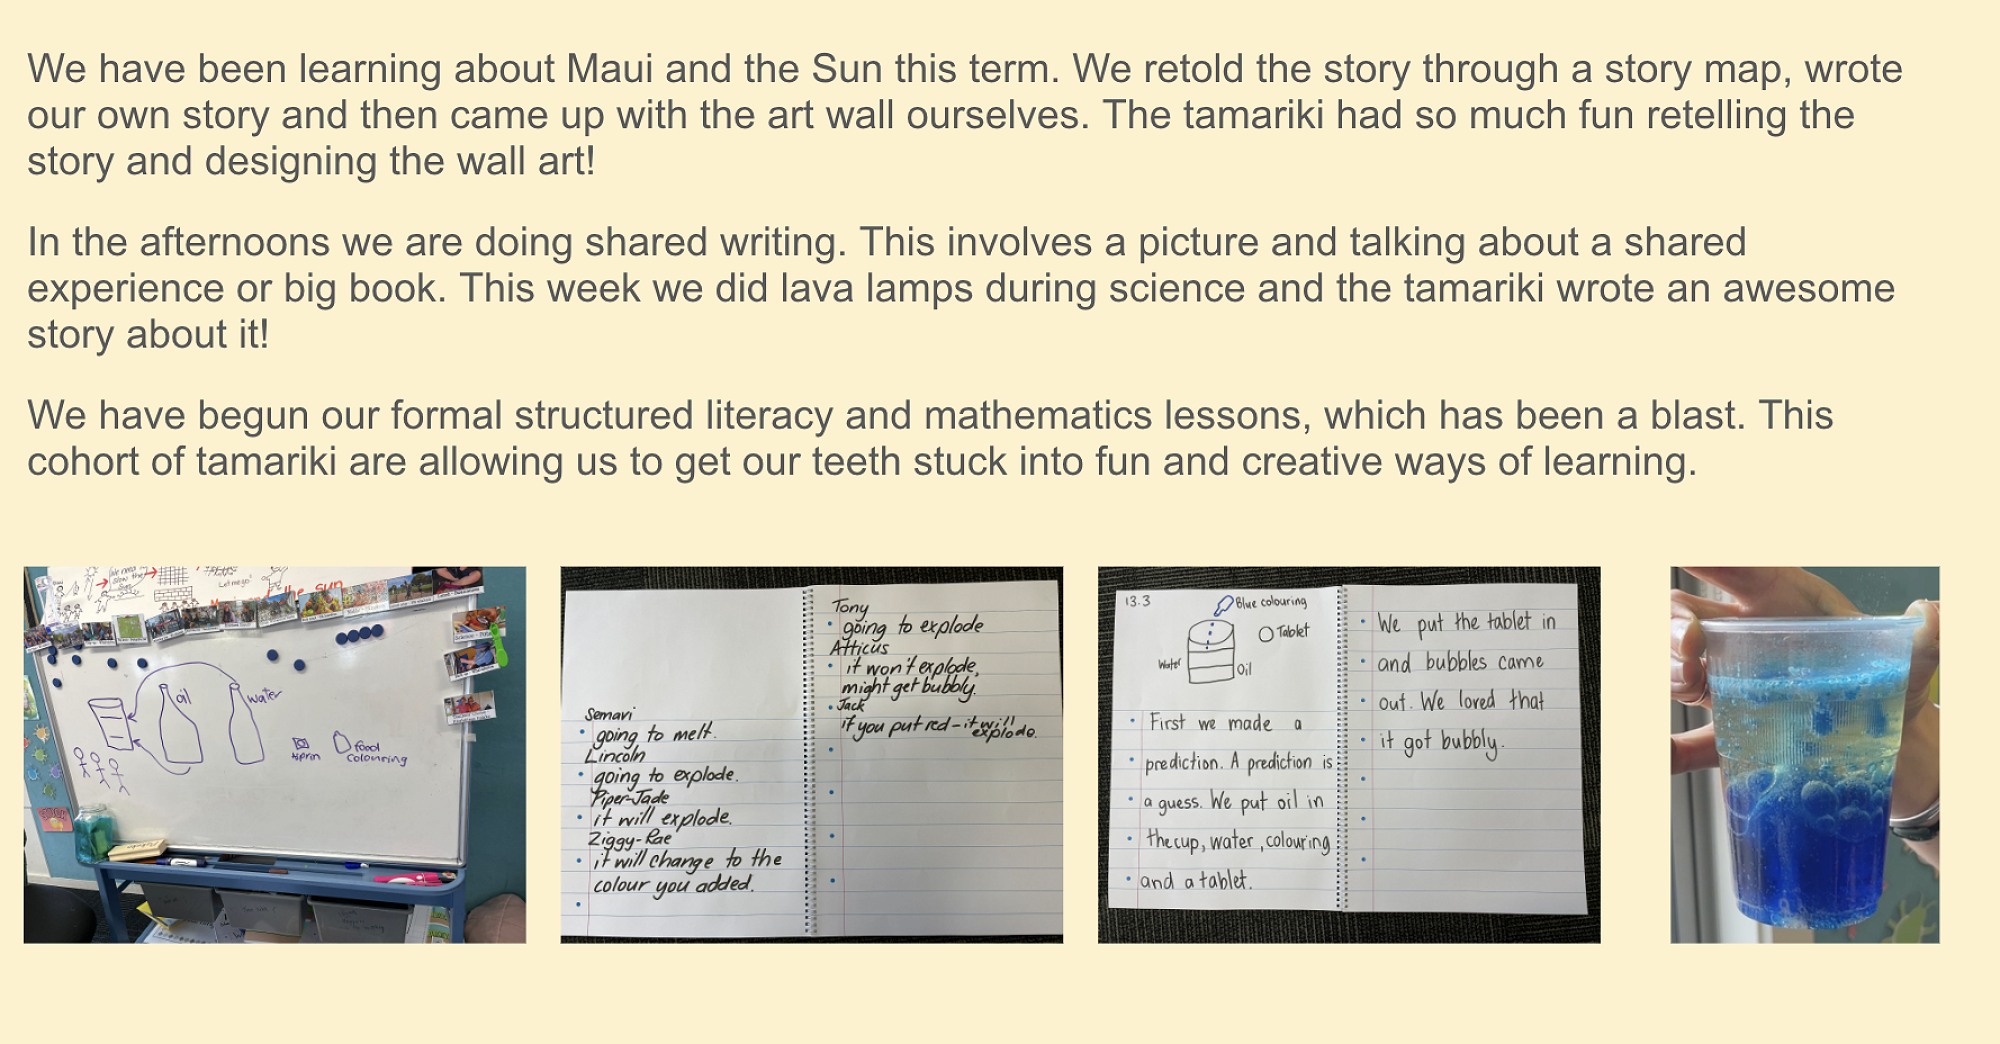 We have been learning about Maui and the Sun this term. We retold the story through a story map, wrote
our own story and then came up with the art wall ourselves. The tamariki had so much fun retelling the
story and designing the wall art!
In the afternoons we are doing shared writing. This involves a picture and talking about a shared
experience or big book. This week we did lava lamps during science and the tamariki wrote an awesome
story about it!
We have begun our formal structured literacy and mathematics lessons, which has been a blast. This
cohort of tamariki are allowing us to get our teeth stuck into fun and creative ways of learning.
the sun
oil
water
food
colouring
Semavi
going to melt.
Lincoln
going to explode.
Piper-Jade
it will explode.
Ziggy-Rae
it will change to the
colour you added.
Tony
going to explode
Atticus
it won't explode,
might get bubbly.
Jack
if you put red - it will
explode.
13.3
Blue colouring
Tablet
Water
Oil
First we made a
prediction. A prediction is
a guess. We put oil in
the cup, water, colouring
and a tablet.
We put the tablet in
and bubbles came
out. We loved that
it got bubbly.